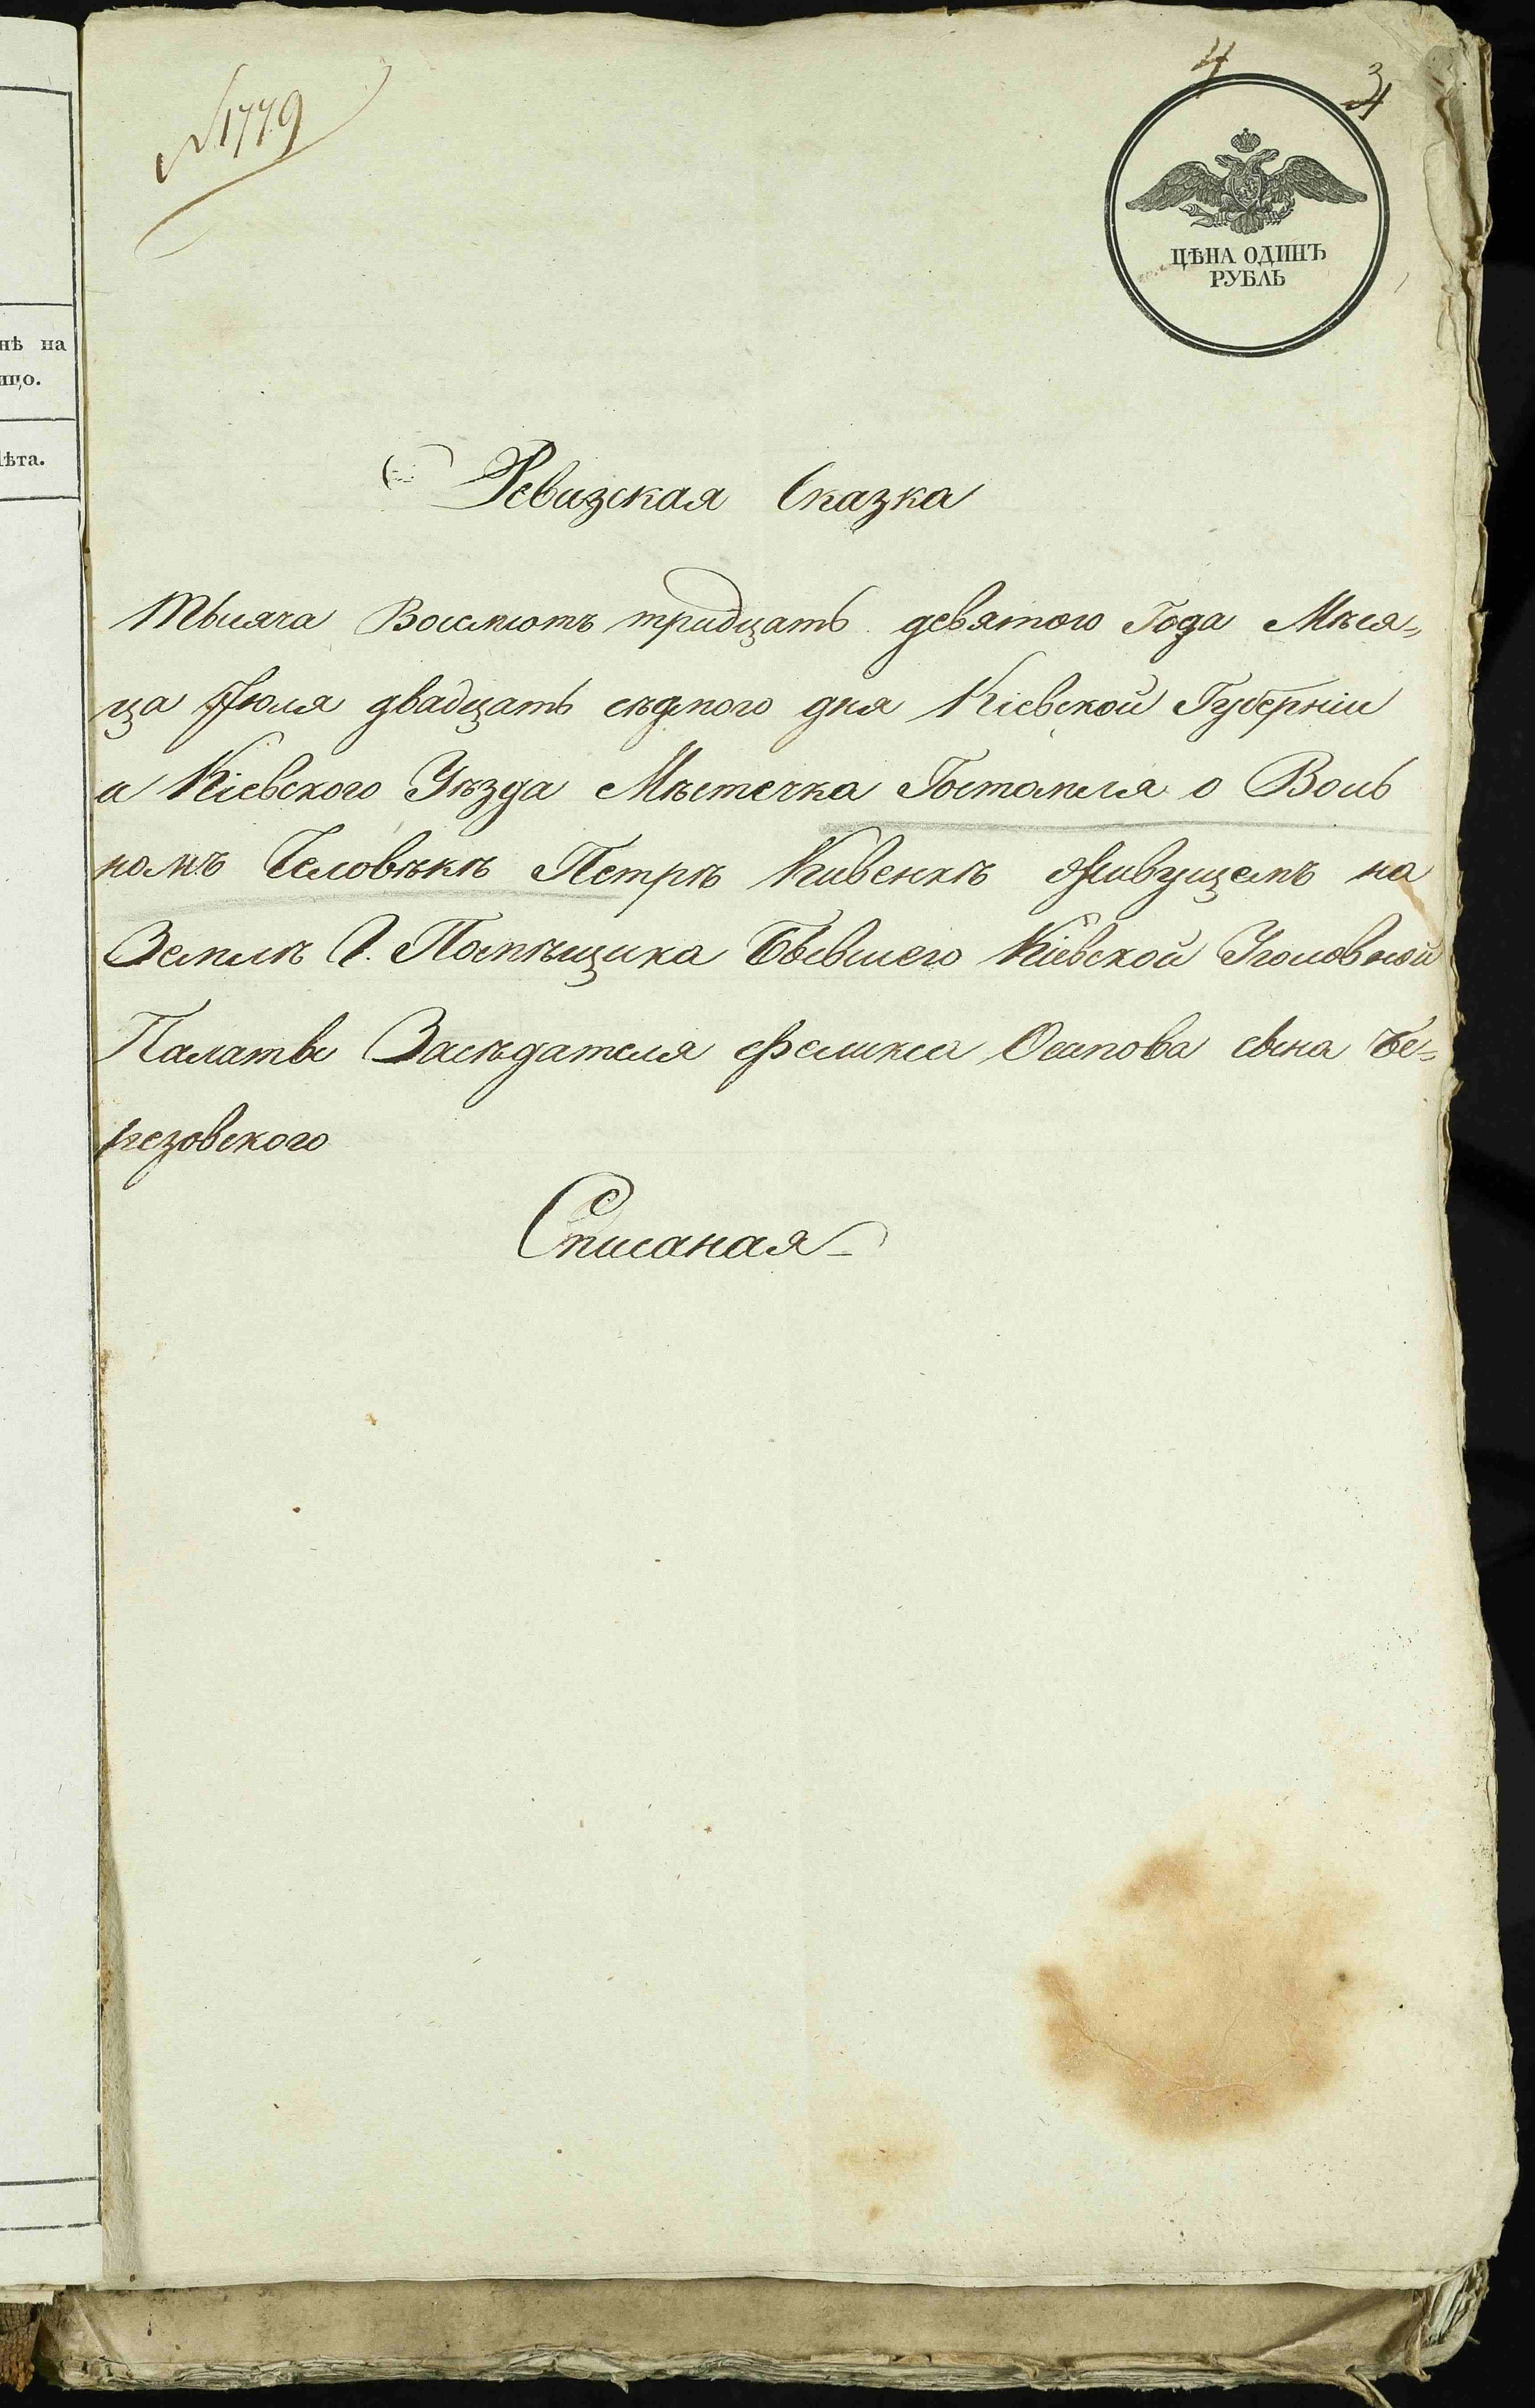 нѣ на
ицо.
Лѣта.
№ 1779
4
3
4
ЦѢНА ОДИНЪ
РУБЛЬ
Ревизская Сказка
Тысяча Восемсотъ тридцать девятого Года Мѣся=
ца Іюля двадцать сѣдмого дня Кіевской Губерніи
и Кіевского Уѣзда Мѣстечка Гостомля о Воль
номъ Человѣкѣ Петрѣ Кивенкѣ Живущемъ на
Землѣ Г. Помѣщика Бывшего Кіевской Уголовной
Палаты Засѣдателя Феликса Осипова сына Бе=
резовского
Списаная